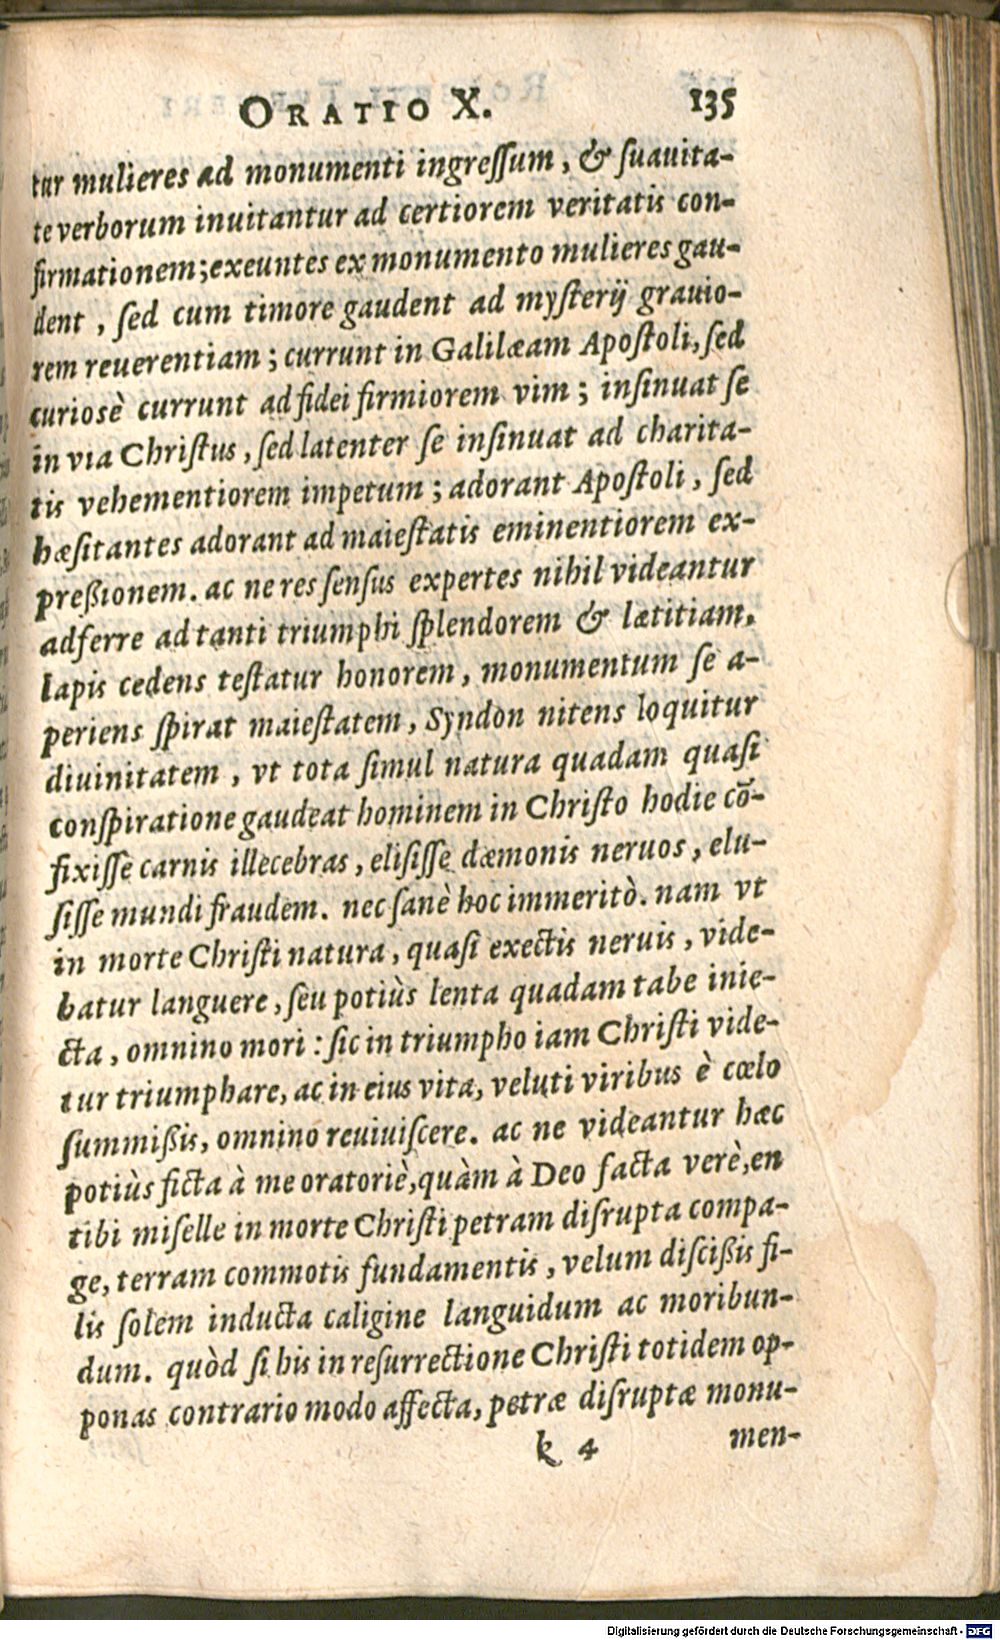 ORATIO X. 135
tur mulieres ad monumenti ingreſſum, & ſuauita-
te verborum inuitantur ad certiorem veritatis con-
firmationem; exeuntes ex monumento mulieres gau-
dent, ſed cum timore gaudent ad myſterij grauio-
rem reuerentiam; currunt in Galilæam Apoſtoli, ſed
curiosè currunt ad fidei firmiorem vim; inſinuat ſe
in via Chriſtus, ſed latenter ſe inſinuat ad charita-
tis vehementiorem impetum; adorant Apoſtoli, ſed
hæſitantes adorant ad maieſtatis eminentiorem ex-
preßionem. ac ne res ſenſus expertes nihil videantur
adferre ad tanti triumphi ſplendorem & lætitiam,
lapis cedens teſtatur honorem, monumentum ſe a-
periens ſpirat maieſtatem, Syndon nitens loquitur
diuinitatem, vt tota ſimul natura quadam quaſi
conſpiratione gaudeat hominem in Chriſto hodie cō-
fixiſſe carnis illecebras, eliſiſſe dæmonis neruos, elu-
ſiſſe mundi fraudem. nec ſanè hoc immeritò. nam vt
in morte Chriſti natura, quaſi exectis neruis, vide-
batur languere, ſeu potiùs lenta quadam tabe inie-
cta, omnino mori: ſic in triumpho iam Chriſti vide-
tur triumphare, ac in eius vita, veluti viribus è cœlo
ſummißis, omnino reuiuiſcere. ac ne videantur hæc
potiùs ficta à me oratoriè, quàm à Deo facta verè, en
tibi miſelle in morte Chriſti petram diſrupta compa-
ge, terram commotis fundamentis, velum diſcißis fi-
lis ſolem inducta caligine languidum ac moribun-
dum. quòd ſi his in reſurrectione Chriſti totidem op-
ponas contrario modo affecta, petræ diſruptæ monu-
k 4 men-
Digitalisierung gefördert durch die Deutsche Forschungsgemeinschaft - DFG